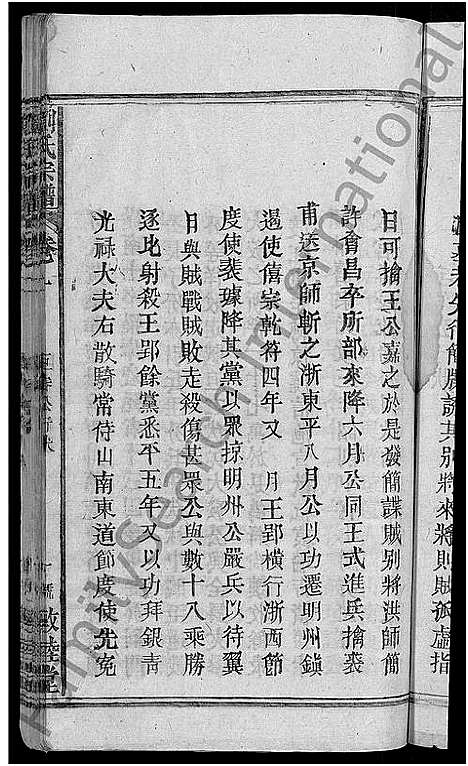 先行簡牒說其別將來將則賊孤虛指
日可擒王公嘉之於是發簡諜賊別將洪師簡
許會昌卒所部來降六月公同王式進兵擒裘
甫送京師斬之浙東平八月公以功遷明州鎮
遏使僖宗乾符四年又 月王郢橫行浙西節
度使裴璩降其黨以眾掠明州公嚴兵以待翼
日與賊戰賊敗走殺傷甚眾公與數十八乘勝
逐北射殺王郢餘黨悉平五年又以功拜銀青
光祿大夫右散騎常侍山南東道節度使先寃
劉氏宗譜 卷
敦睦堂
FamilySearch International